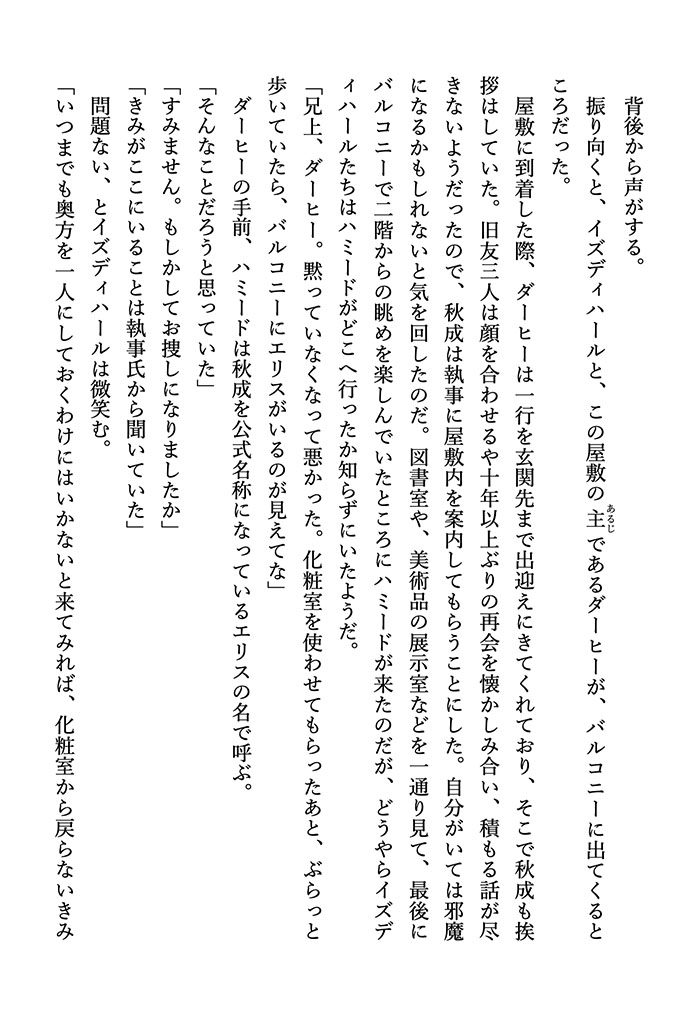 背後から声がする。
振り向くと、イズディハールと、この屋敷の主であるダーヒーが、バルコニーに出てくると
ころだった。
屋敷に到着した際、ダーヒーは一行を玄関先まで出迎えにきてくれており、そこで秋成も挨
拶はしていた。旧友三人は顔を合わせるや十年以上ぶりの再会を懐かしみ合い、積もる話が尽
きないようだったので、秋成は執事に屋敷内を案内してもらうことにした。自分がいては邪魔
になるかもしれないと気を回したのだ。図書室や、美術品の展示室などを一通り見て、最後に
バルコニーで二階からの眺めを楽しんでいたところにハミードが来たのだが、どうやらイズデ
ィハールたちはハミードがどこへ行ったか知らずにいたようだ。
「兄上、ダーヒー。黙っていなくなって悪かった。化粧室を使わせてもらったあと、ぶらっと
歩いていたら、バルコニーにエリスがいるのが見えてな」
ダーヒーの手前、ハミードは秋成を公式名称になっているエリスの名で呼ぶ。
「そんなことだろうと思っていた」
「すみません。もしかしてお捜しになりましたか」
「きみがここにいることは執事氏から聞いていた」
問題ない、とイズディハールは微笑む。
「いつまでも奥方を一人にしておくわけにはいかないと来てみれば、化粧室から戻らないきみ
あるじ